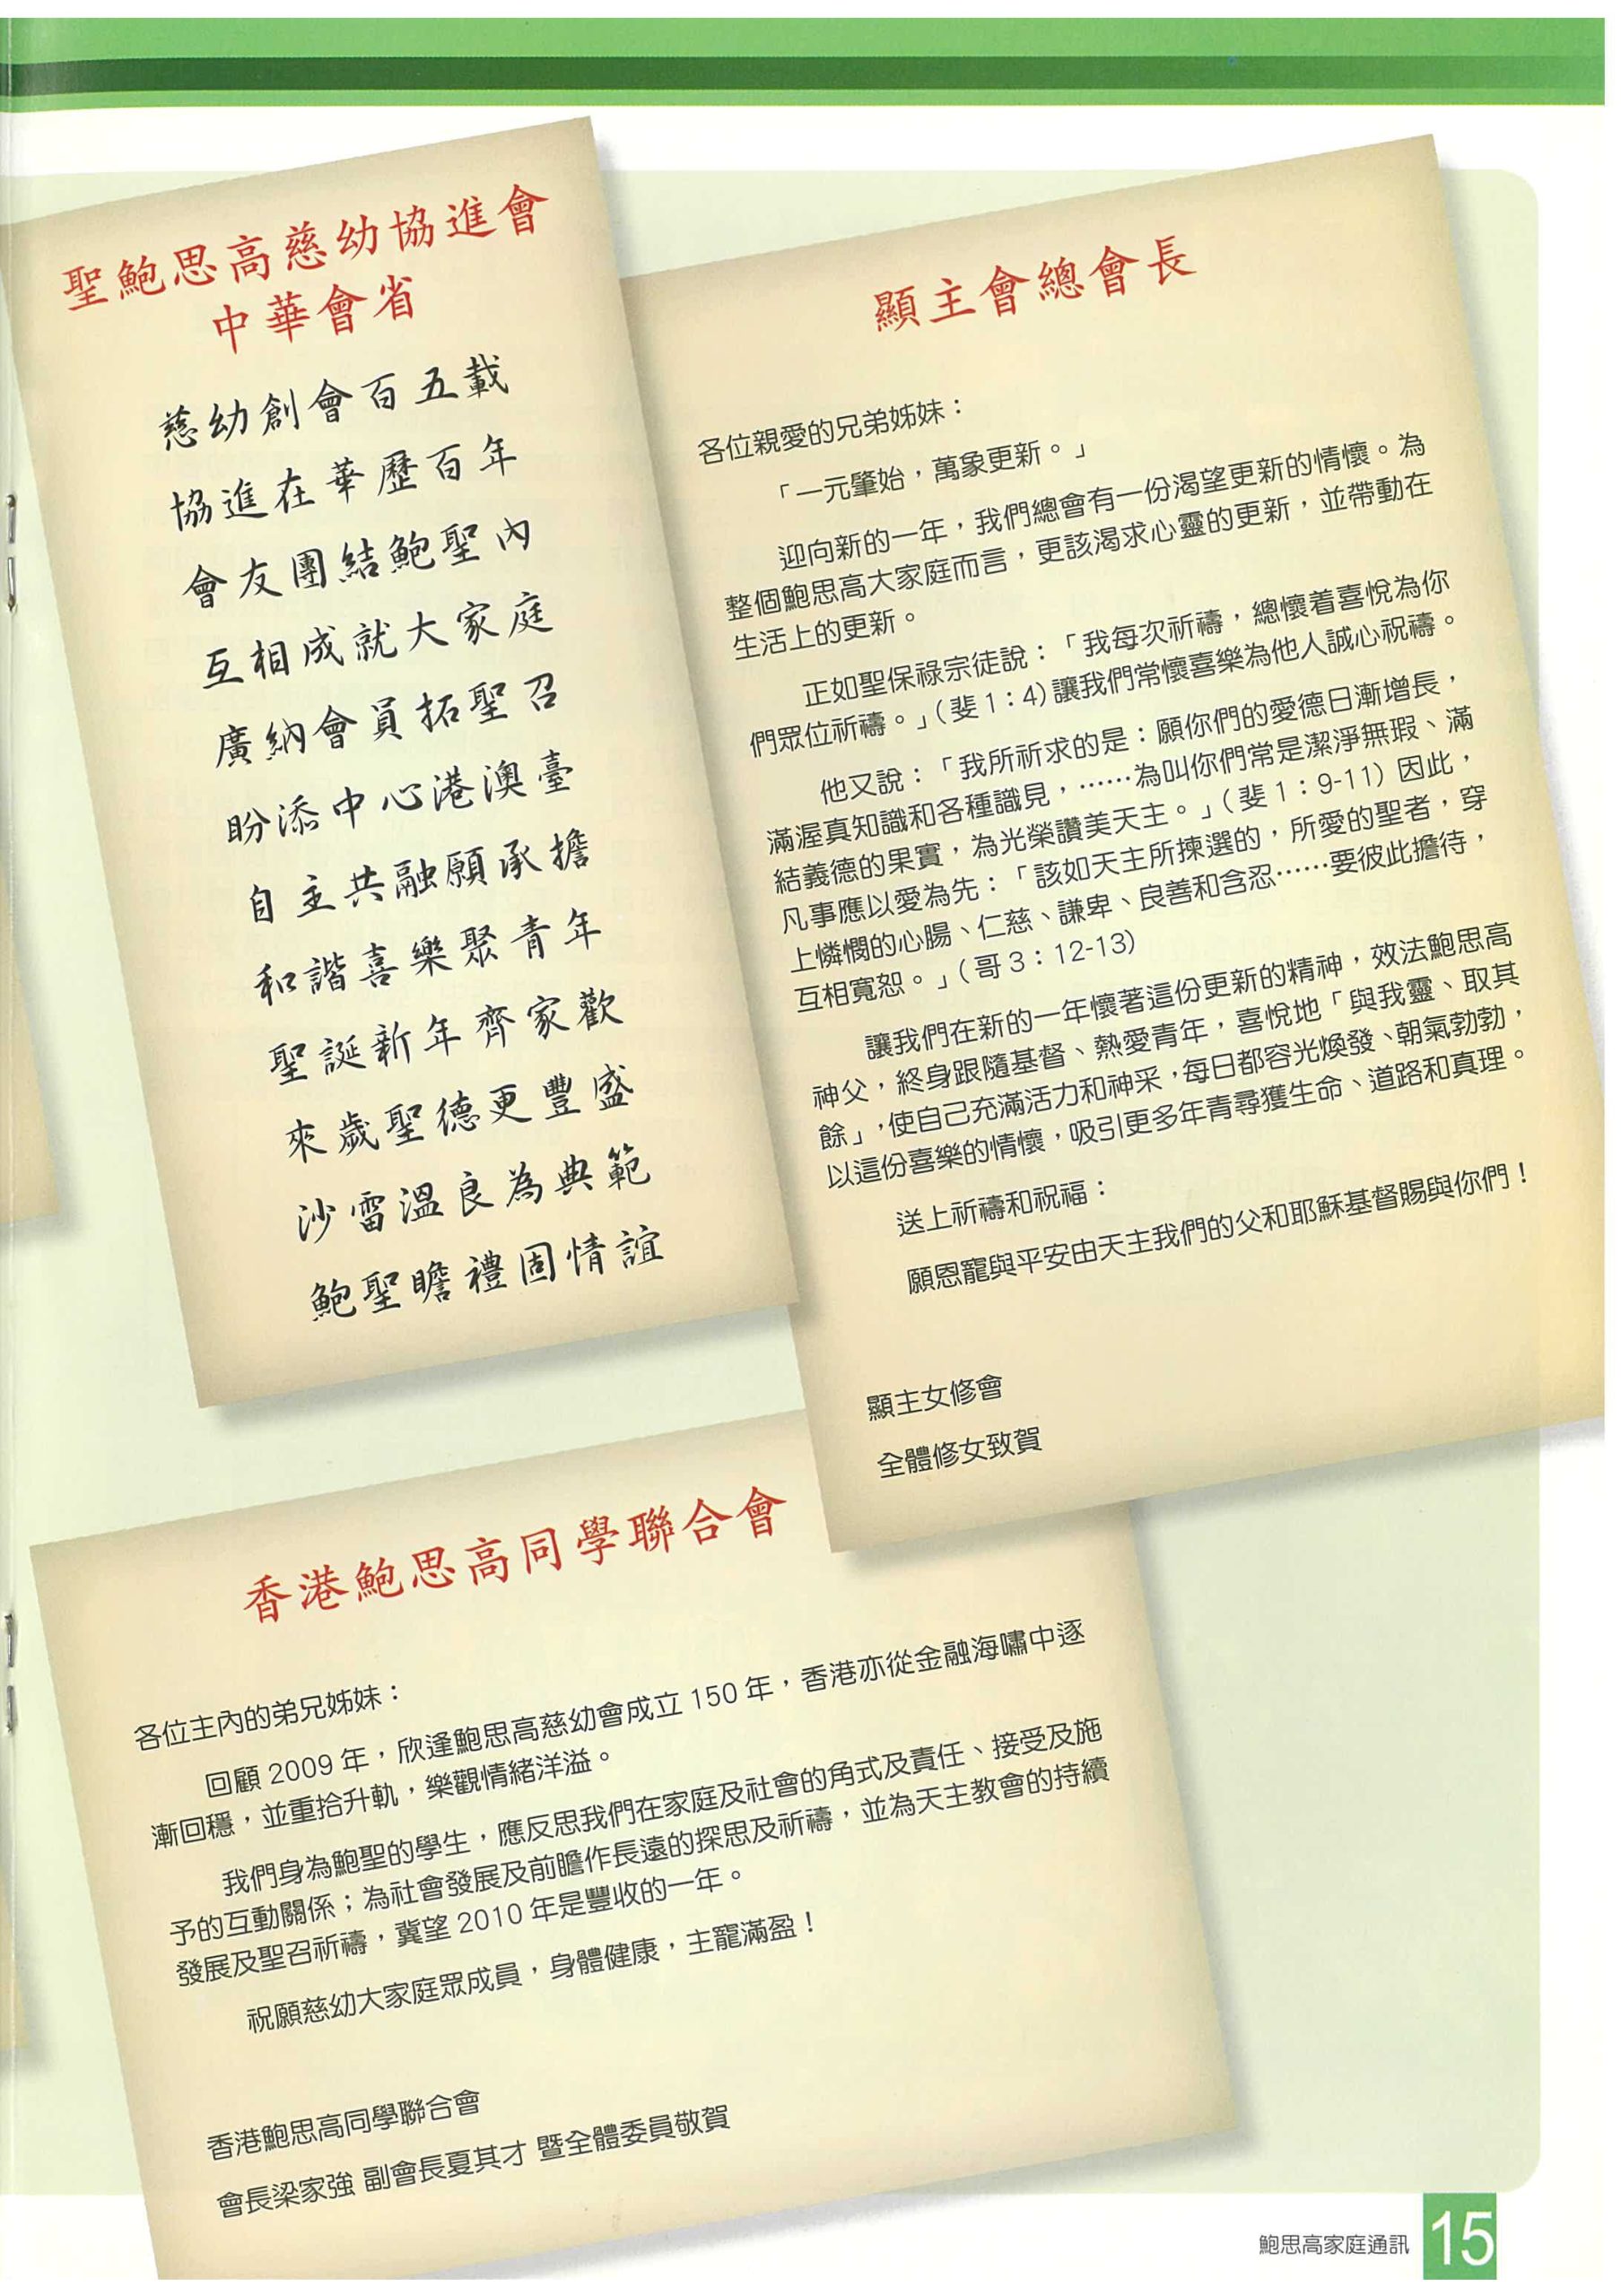 聖鮑思高慈幼協進會
中華會省
慈幼創會百五載
協進在華歷百年
會友團結鮑聖內
互相成就大家庭
廣納會員拓聖召
盼添中心港澳臺
自主共融願承擔
和諧喜樂聚青年
聖誕新年齊家歡
來歲聖德更豐盛
沙雷溫良為典範
鮑聖瞻禮固情誼
顯主會總會長
各位親愛的兄弟姊妹：
「一元肇始，萬象更新。」
迎向新的一年，我們總會有一份渴望更新的情懷。為
整個鮑思高大家庭而言，更該渴求心靈的更新，並帶動在
生活上的更新。
正如聖保祿宗徒說：「我每次祈禱，總懷着喜悅為你
們眾位祈禱。」（斐1：4）讓我們常懷喜樂為他人誠心祝禱。
他又說：「我所祈求的是：願你們的愛德日漸增長，
滿渥真知識和各種識見，……為叫你們常是潔淨無瑕、滿
結義德的果實，為光榮讚美天主。」（斐1：9-11）因此，
凡事應以愛為先：「該如天主所揀選的，所愛的聖者，穿
上憐憫的心腸、仁慈、謙卑、良善和含忍……要彼此擔待，
互相寬恕。」（哥3：12-13）
讓我們在新的一年懷著這份更新的精神，效法鮑思高
神父，終身跟隨基督、熱愛青年，喜悅地「與我靈、取其
餘」，使自己充滿活力和神采，每日都容光煥發、朝氣勃勃，
以這份喜樂的情懷，吸引更多年青尋獲生命、道路和真理。
送上祈禱和祝福：
願恩寵與平安由天主我們的父和耶穌基督賜與你們！
顯主女修會
全體修女致賀
香港鮑思高同學聯合會
各位主內的弟兄姊妹：
回顧2009年，欣逢鮑思高慈幼會成立150年，香港亦從金融海嘯中逐
漸回穩，並重拾升軌，樂觀情緒洋溢。
我們身為鮑聖的學生，應反思我們在家庭及社會的角式及責任、接受及施
予的互動關係；為社會發展及前瞻作長遠的探思及祈禱，並為天主教會的持續
發展及聖召祈禱，冀望2010年是豐收的一年。
祝願慈幼大家庭眾成員，身體健康，主寵滿盈！
香港鮑思高同學聯合會
會長梁家強 副會長夏其才 暨全體委員敬賀
鮑思高家庭通訊 15